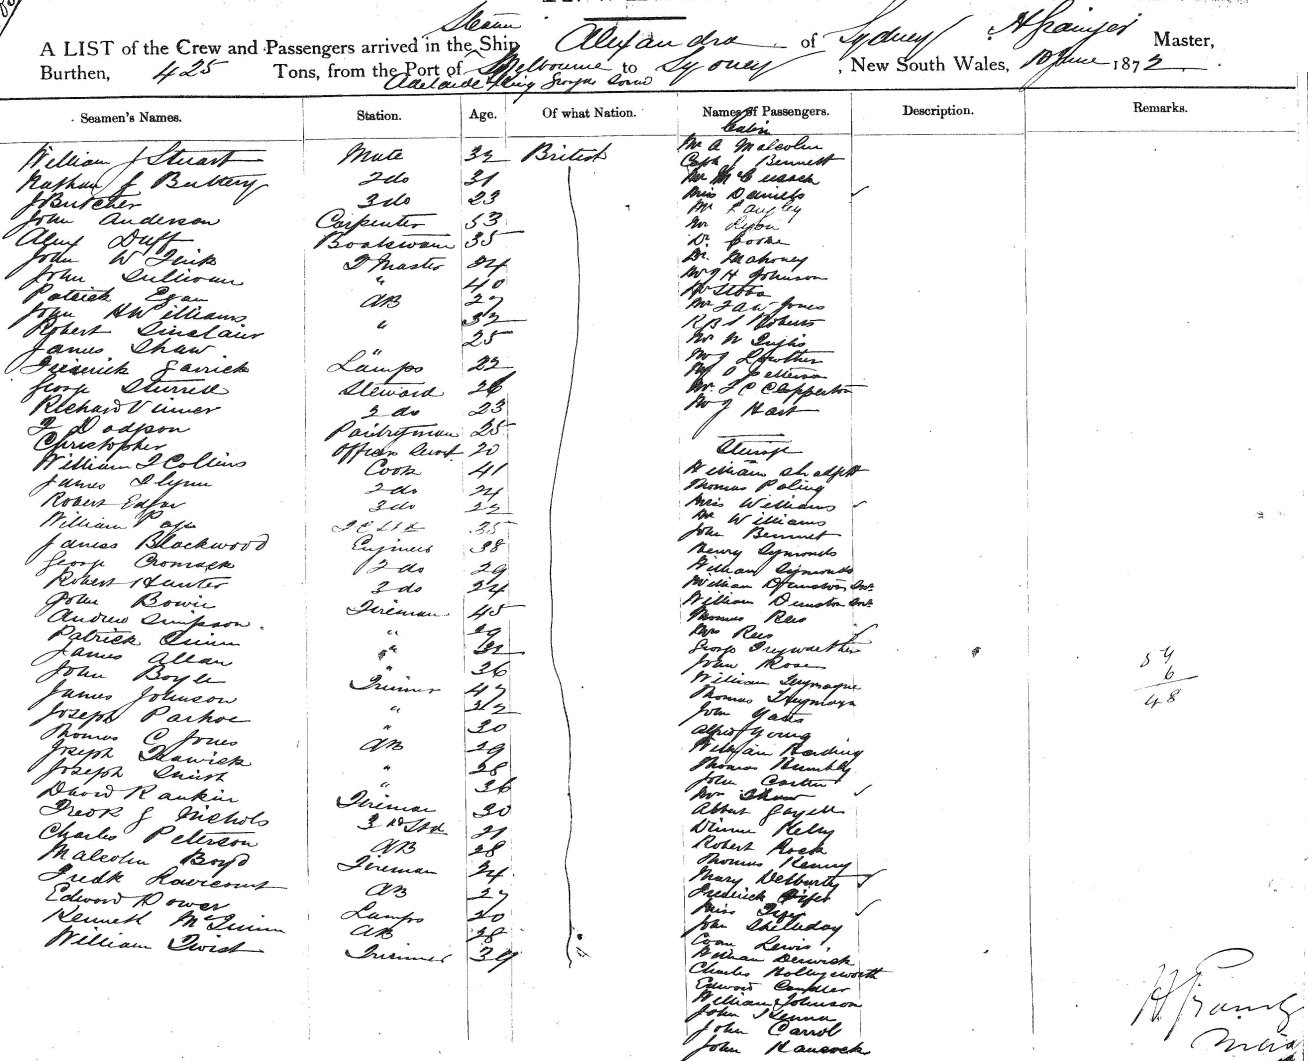 Steam
A LIST of the Crew and Passengers arrived in the Ship Alexandra of Sydney H Grainger Master,
Burthen, 425 Tons, from the Port of Melbourne to Sydney, New South Wales, 10 June 1872
Adelaide King Georges Sound
Seamen's Names. Station. Age. Of what Nation. Names of Passengers. Description. Remarks.
Cabin
William J Stuart Mate 32 British
Nathan J Buttery 2 do 31
J Butcher 3 do 23
John Anderson Carpenter 53
Alex Duff Boatswain 35
John W Fink Q Master 24
John Sullivan " 40
Patrick Egan AB 27
John H Williams " 32
Robert Sinclair 25
James Shaw "
Frederick Garrick Lamps 22
George Sturrell Steward 26
Richard Vinner 2 do 23
F Dodson Pantryman 25
Christopher Officers Servt 20
William T Collins Cook 41
James Flynn 2 do 24
Robert Edgar 3 do 22
William Page 35
James Blackwood Engineer 38
George Cromack 2 do 29
Robert Hunter 3 do 24
John Bowie Fireman 45
Andrew Simpson " 29
Patrick Quinn " 32
James Allan " 36
John Boyle Trimmer 47
James Johnson " 32
Joseph Parhoe " 30
Thomas C Jones AB 29
Joseph Trawick " 28
Joseph Smith " 36
David Rankin Fireman 30
Fredk J Nichols 3rd Std 21
Charles Peterson AB 28
Malcolm Boyd Fireman 24
Fredk AB 27
Edward Power Lamps 20
Kenneth McGuinn AB 28
William Twist Trimmer 39
Mr A Malcolm
Capt J Bennett
Mr McCusack
Miss Daniels
Mr Langley
Mr Lyon
Dr Cooke
Dr. Mahoney
Mr J H Johnson
Mr Stobo
Mr F A W Jones
R B S Roberts
Mr W
Mr J Lowther
Mr O Petterson
Mr. F C Clapperton
Mr J Hart
Steerage
William
Thomas Poling
Miss Williams
Mr Williams
John Bennet
Henry Symonds
William Symonds
William Dunston Snr
William Dunston Jnr
Thomas Rees
Mrs Rees
George Treywarthen
John Rose
William Tremayne
Thomas Tremayne
John Yates
Alfred Young
William Harding
Thomas Rumbly
John Carter
Mrs Shaw
Albert Gayell
Dinnie Kelly
Robert Rook
Thomas Kenny
Mary Delburty
Frederick Piper
Miss Piper
John Shelvday
Evan Lewis
William Derwick
Charles Hollingsworth
Edward Candler
William Johnson
John Kenna
John Carrol
John Hancock
54
6
48
H Grainger